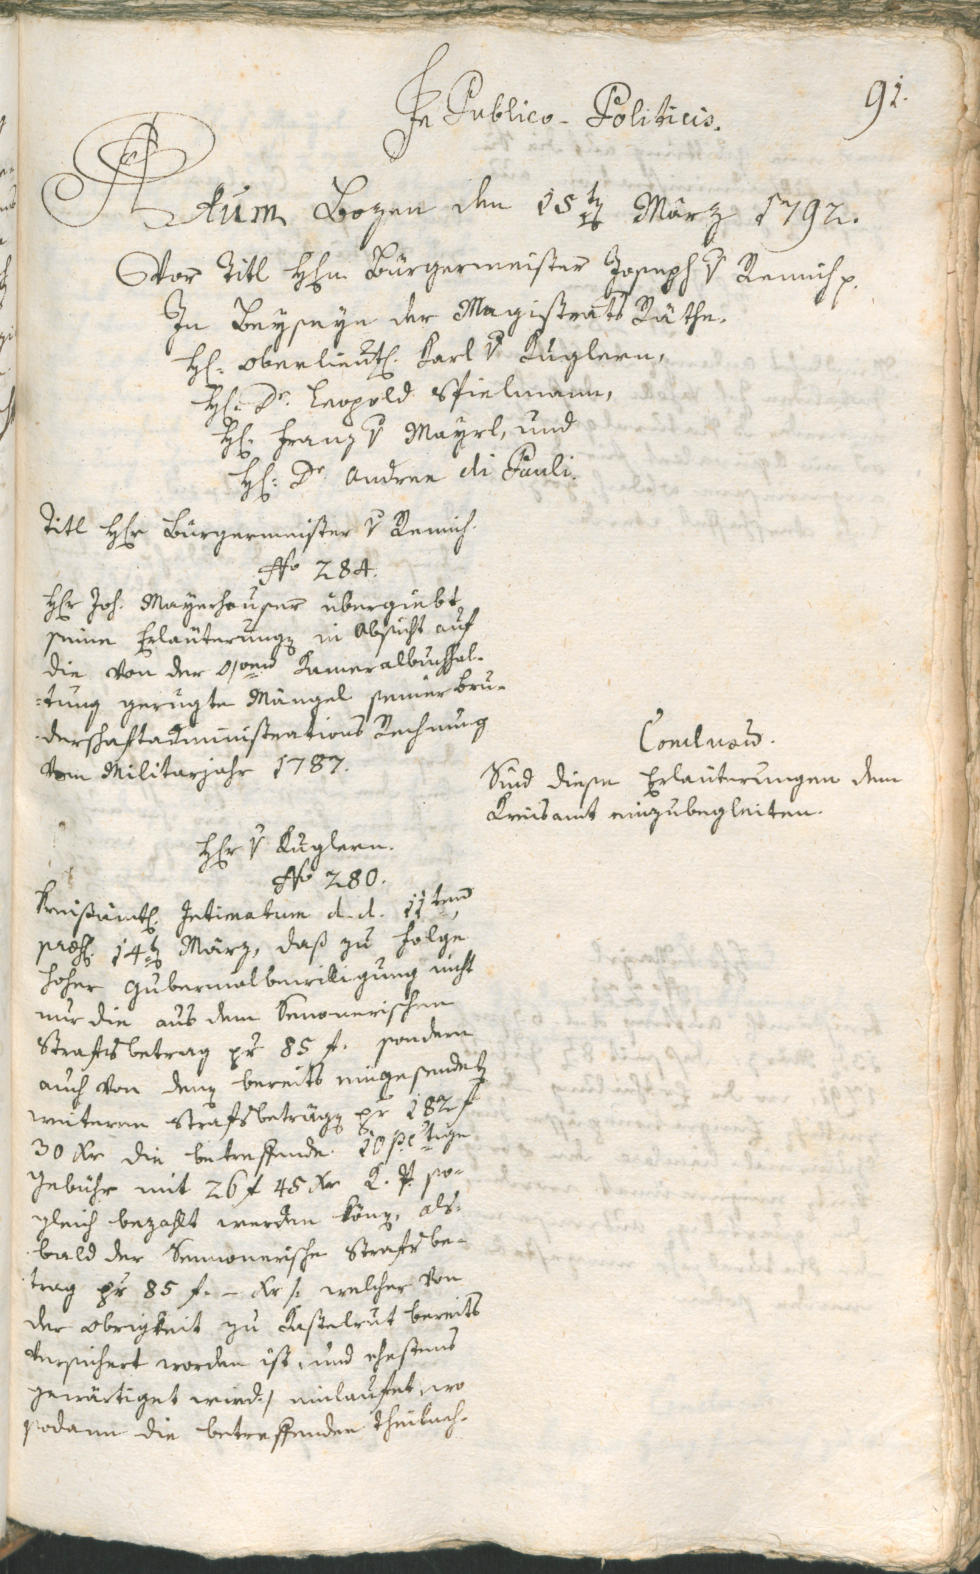 91.
In Publico-Politicis.
Actum Bozen den 15tn März 1792.
Vor Titl Hhn Bürgermeister Joseph v Remich p.
In Beyseyn der Magistrats Räthe.
Hl: Oberlieutl. Karl v Kuglern,
Hl: Dr. Leopold Spielmann,
Hl: Franz v Mayrl, und
Hl: Dr Andree di Pauli.
Titl Hhr Bürgermeister v Remich.
No 284.
Hhr Joh. Mayrhauser übergiebt
seine Erlauterungen in Absicht auf
die von der Kameralbuchhal-
-tung gerügte Mängel seiner Bru-
derschaftadministrations Rechnung
vom Militarjahr 1787.
Conclusum.
Sind diese Erlauterungen dem
Kreisamt einzubegleiten.
Hhr v Kuglern.
No 280.
Kreisämtl. Intimatum d. d. 11ten
praes. 14tn März, daß zu Folge
hoher Gubernialbewilligung nicht
nur die aus dem Senonerischen
Strafsbetrag pr 85 f. sondern
auch von denen bereits eingesendeten
weiteren Strafsbeträgen pr 182 f
30 Kr die betreffende 10 pctige
Gebühr mit 26 f 45 Kr K. P. so-
gleich bezahlt werden könen, als-
bald der Senonerische Strafsbe-
trag pr 85 f. – Kr /: welcher von
der Obrigkeit zu Kastelrut bereits
versichert worden ist, und ehestens
gewärtiget wird :/ einlaufet, wo
sodann die betreffenden Theilneh-